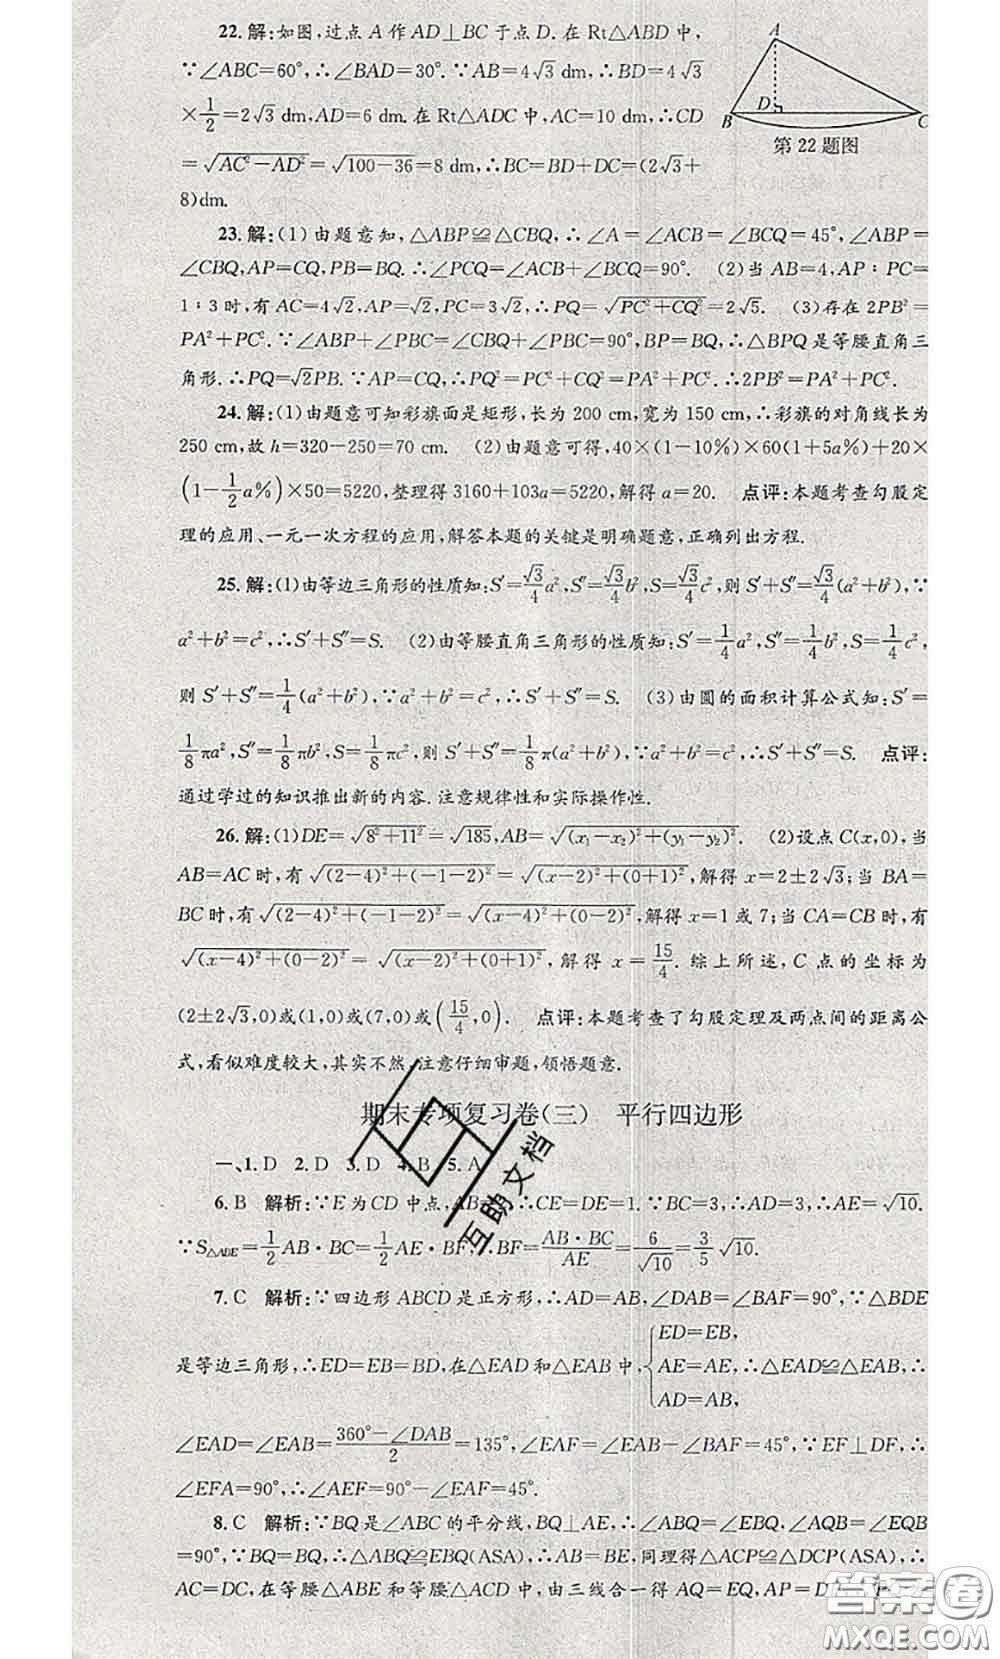 22.解:如图,过点 A 作 AD⊥BC 于点 D. 在 Rt△ABD 中,
∵∠ABC=60°,∴∠BAD=30°.∵AB=4√3 dm,∴BD=4√3
×1/2=2√3 dm,AD=6 dm. 在 Rt△ADC 中,AC=10 dm,∴CD
=√(AC²-AD²)=√(100-36)=8 dm,∴BC=BD+DC=(2√3+
8)dm.
A
B
D
C
第 22 题图
23.解:(1)由题意知,△ABP≌△CBQ,∴∠A=∠ACB=∠BCQ=45°,∠ABP=
∠CBQ,AP=CQ,PB=BQ.∴∠PCQ=∠ACB+∠BCQ=90°. (2)当 AB=4,AP∶PC=
1∶3 时,有 AC=4√2,AP=√2,PC=3√2,∴PQ=√(PC²+CQ²)=2√5. (3)存在 2PB²=
PA²+PC².∵∠ABP+∠PBC=∠CBQ+∠PBC=90°,BP=BQ,∴△BPQ 是等腰直角三
角形.∴PQ=√2PB.∵AP=CQ,∴PQ²=PC²+CQ²=PA²+PC².∴2PB²=PA²+PC².
24.解:(1)由题意可知彩旗面是矩形,长为 200 cm,宽为 150 cm,∴彩旗的对角线长为
250 cm,故 h=320-250=70 cm. (2)由题意可得,40×(1-10%)×60(1+5a%)+20×
(1-1/2a%)×50=5220,整理得 3160+103a=5220,解得 a=20. 点评:本题考查勾股定
理的应用、一元一次方程的应用,解答本题的关键是明确题意,正确列出方程.
25.解:(1)由等边三角形的性质知:S′=√3/4a²,S″=√3/4b²,S=√3/4c²,则 S′+S″=√3/4(a²+b²),∵
a²+b²=c²,∴S′+S″=S. (2)由等腰直角三角形的性质知:S′=1/4a²,S″=1/4b²,S=1/4c²,
则 S′+S″=1/4(a²+b²),∵a²+b²=c²,∴S′+S″=S. (3)由圆的面积计算公式知:S′=
1/8πa²,S″=1/8πb²,S=1/8πc²,则 S′+S″=1/8π(a²+b²),∵a²+b²=c²,∴S′+S″=S. 点评:
通过学过的知识推出新的内容.注意规律性和实际操作性.
26.解:(1)DE=√(8²+11²)=√185,AB=√((x₁-x₂)²+(y₁-y₂)²). (2)设点 C(x,0),当
AB=AC 时,有√((2-4)²+(-1-2)²)=√((x-2)²+(0+1)²),解得 x=2±2√3;当 BA=
BC 时,有√((2-4)²+(-1-2)²)=√((x-4)²+(0-2)²),解得 x=1 或 7;当 CA=CB 时,有
√((x-4)²+(0-2)²)=√((x-2)²+(0+1)²),解得 x=15/4. 综上所述,C 点的坐标为
(2±2√3,0)或(1,0)或(7,0)或(15/4,0). 点评:本题考查了勾股定理及两点间的距离公
式,看似难度较大,其实不然,注意仔细审题,领悟题意.
期末专项复习卷(三) 平行四边形
一、1.D 2.D 3.D 4.B 5.A
6.B 解析:∵E 为 CD 中点,AB=,∴CE=DE=1.∵BC=3,∴AD=3,∴AE=√10.
∵S△ABE=1/2AB·BC=1/2AE·BF,∴BF=AB·BC/AE=6/√10=3/5√10.
7.C 解析:∵四边形 ABCD 是正方形,∴AD=AB,∠DAB=∠BAF=90°,∵△BDE
是等边三角形,∴ED=EB=BD,在△EAD 和△EAB 中,{ED=EB, AE=AE, AD=AB,∴△EAD≌△EAB,∴
∠EAD=∠EAB=(360°-∠DAB)/2=135°,∠EAF=∠EAB-∠BAF=45°,∵EF⊥DF,∴
∠EFA=90°,∴∠AEF=90°-∠EAF=45°.
8.C 解析:∵BQ 是∠ABC 的平分线,BQ⊥AE,∴∠ABQ=∠EBQ,∠AQB=∠EQB
=90°,∵BQ=BQ,∴△ABQ≌△EBQ(ASA),∴AB=BE,同理得△ACP≌△DCP(ASA),∴
AC=DC,在等腰△ABE 和等腰△ACD 中,由三线合一得 AQ=EQ,AP=D
互助文档
答案卷
MXQE.COM